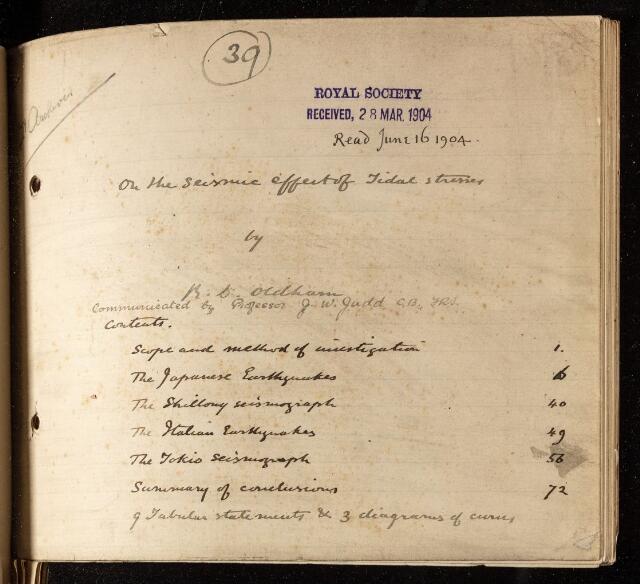 39
Archives
ROYAL SOCIETY
RECEIVED, 28 MAR. 1904
Read June 16 1904.
On the Seismic effect of Tidal stresses
by
R. D. Oldham
Communicated by Professor J. W. Judd C.B., FRS.
Contents.
Scope and method of investigation 1.
The Japanese Earthquakes 6
The Shillong seismograph 40
The Italian Earthquakes 49
The Tokio Seismograph 56
Summary of conclusions 72
9 Tabular statements & 3 diagrams of curves